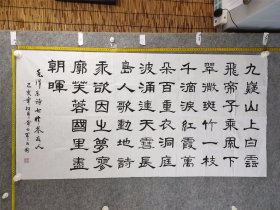 九嶷山上白雲
飛帝子乘風下
翠微斑竹一枝
千滴淚紅霞萬
朵百重衣洞庭
波涌連天雪長
島人歌動地詩
我欲因之夢寥
廓芙蓉國里盡
朝暉
毛澤東詩七律答友人
己亥